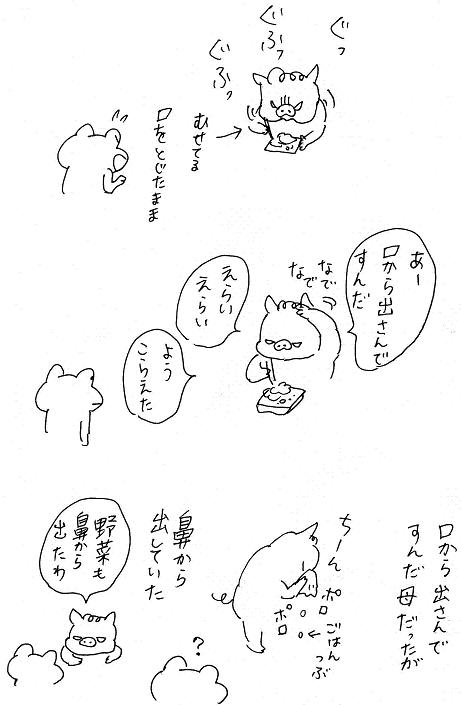 ぐっ
ぐふっ
ぐふっ
むせてる
口をとじたまま
あー
口から出さんで
すんだ
なで
なで
えらい
えらい
よう
こらえた
口から出さんで
すんだ母だったが
ちーん
ポロ
ポロ
ごはん
つぶ
鼻から
出していた
？
野菜も
鼻から
出たわ